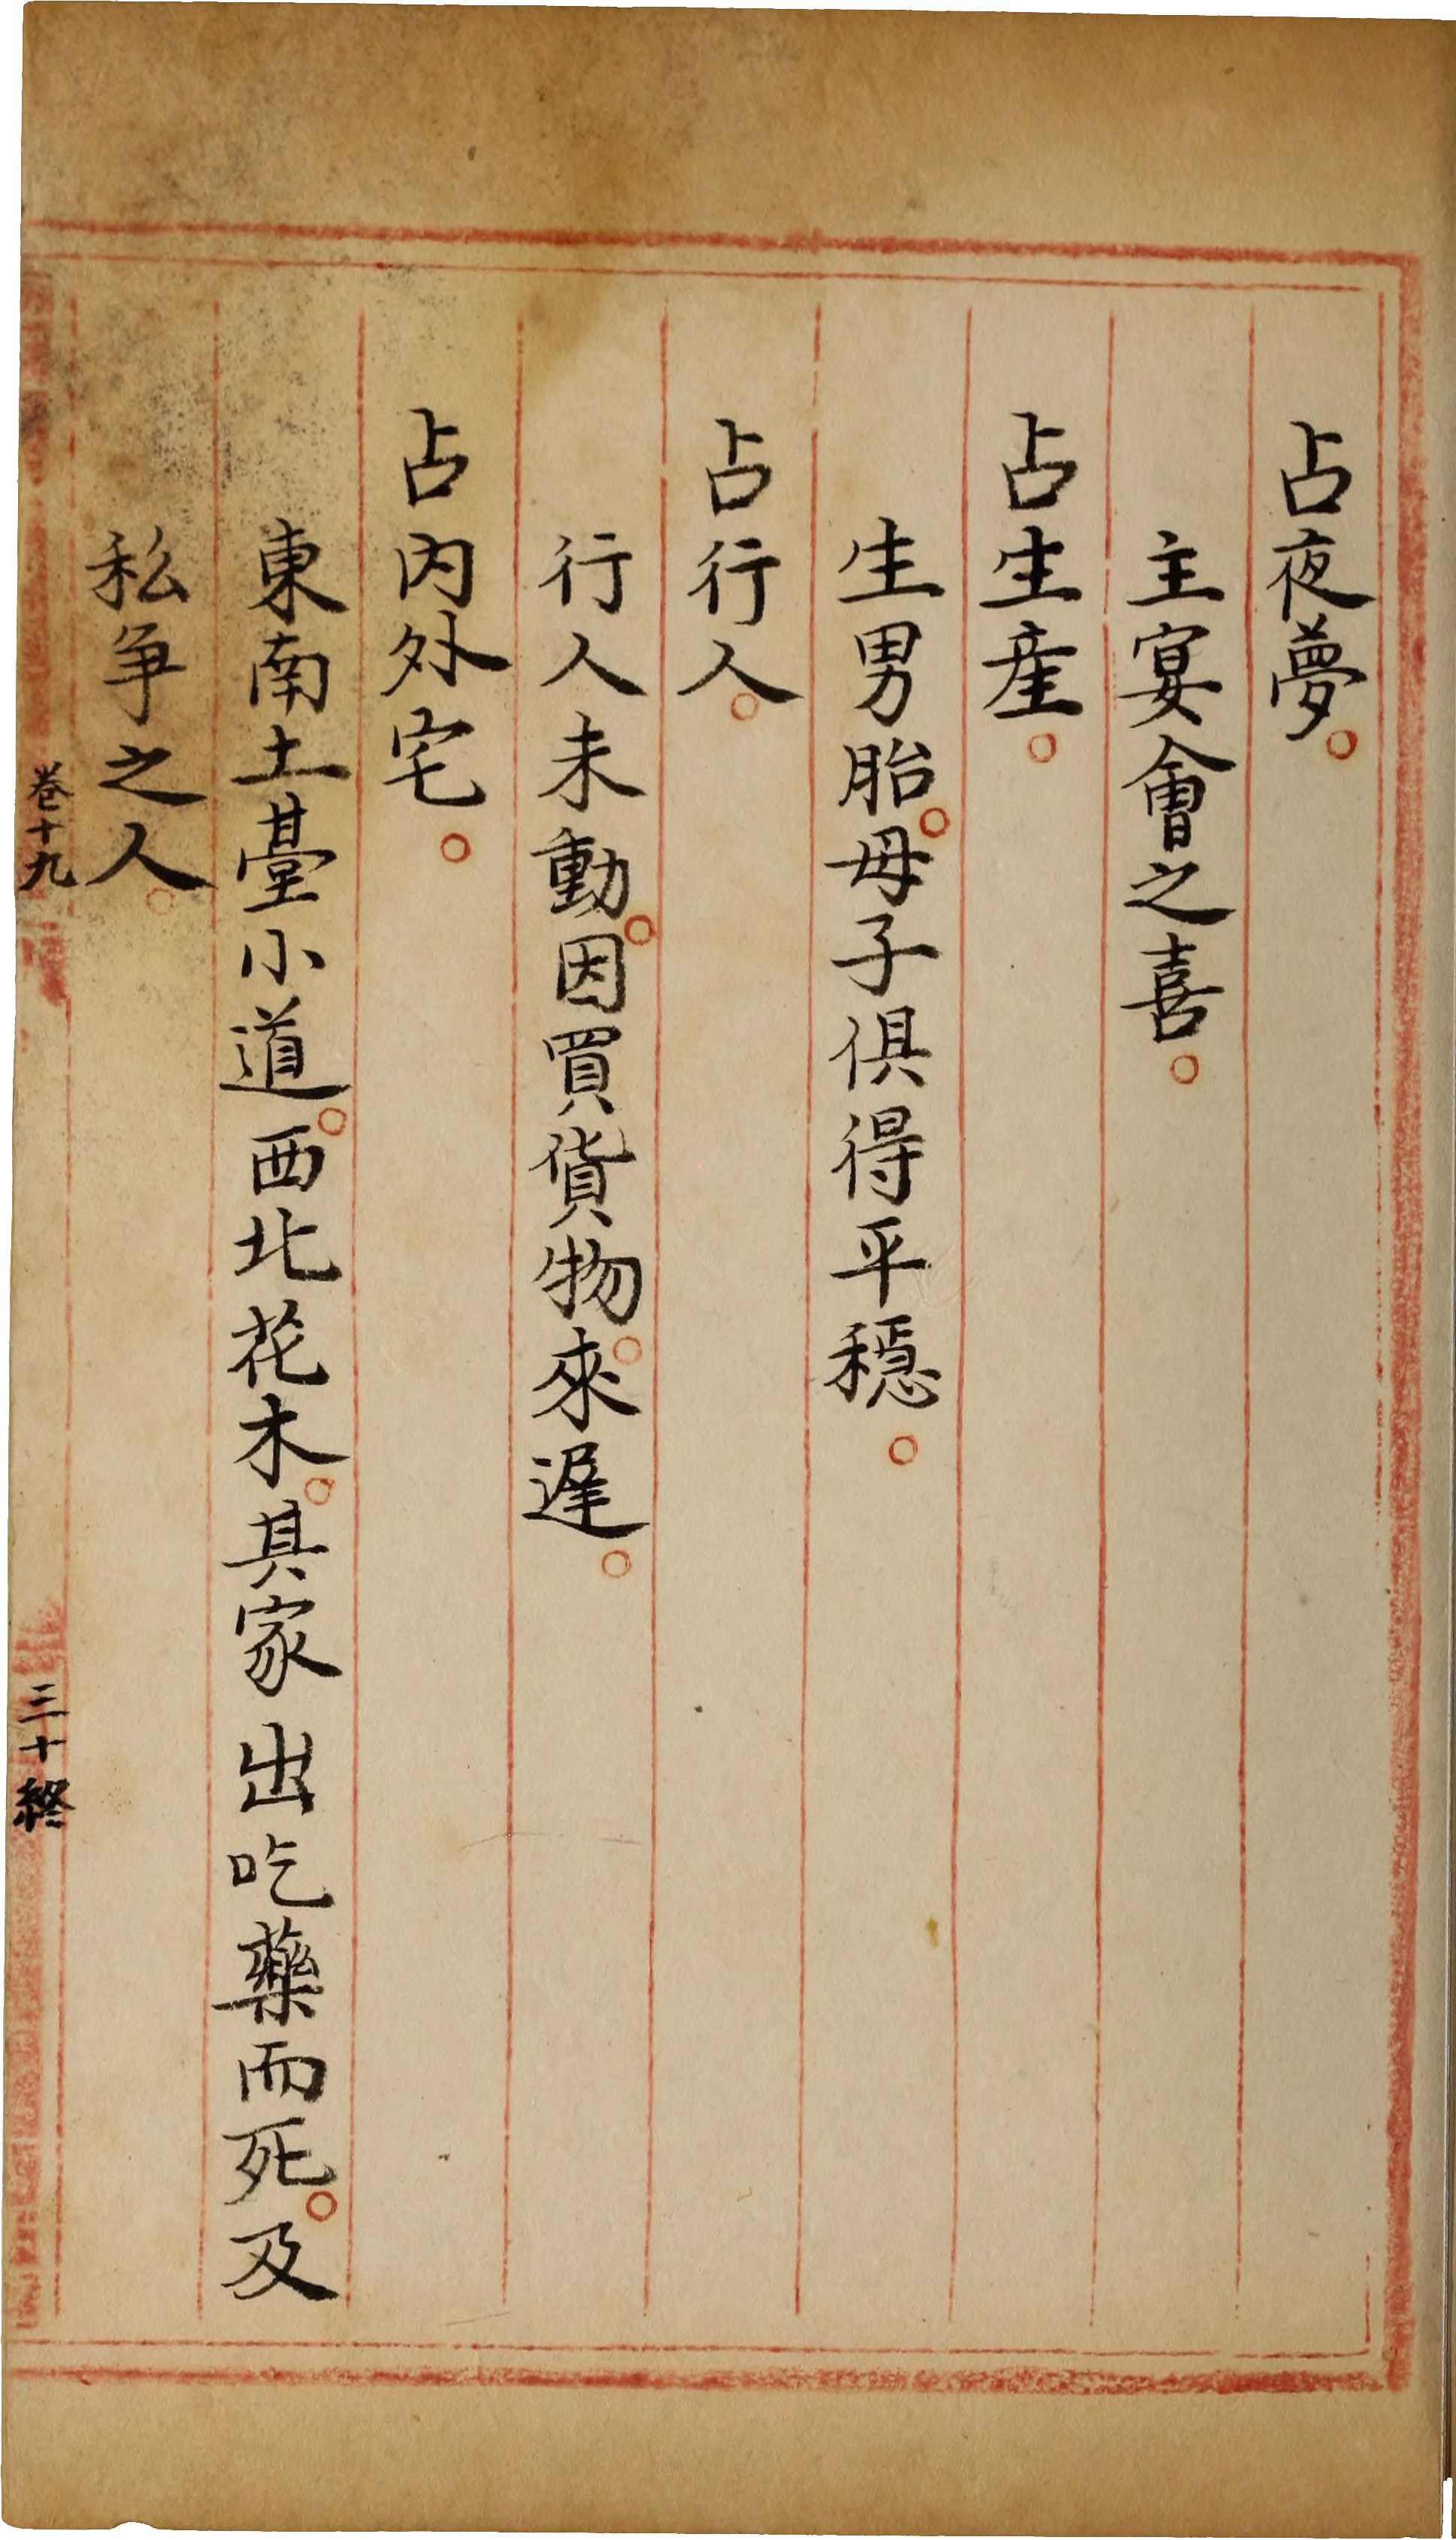 占夜夢。
主宴會之喜。
占生產。
生男胎。母子俱得平穩。
占行人。
行人未動。因買貨物。來遲。
占內外宅。
東南土臺小道。西北花木。其家出吃藥而死。及
私争之人。
卷十九
三十終